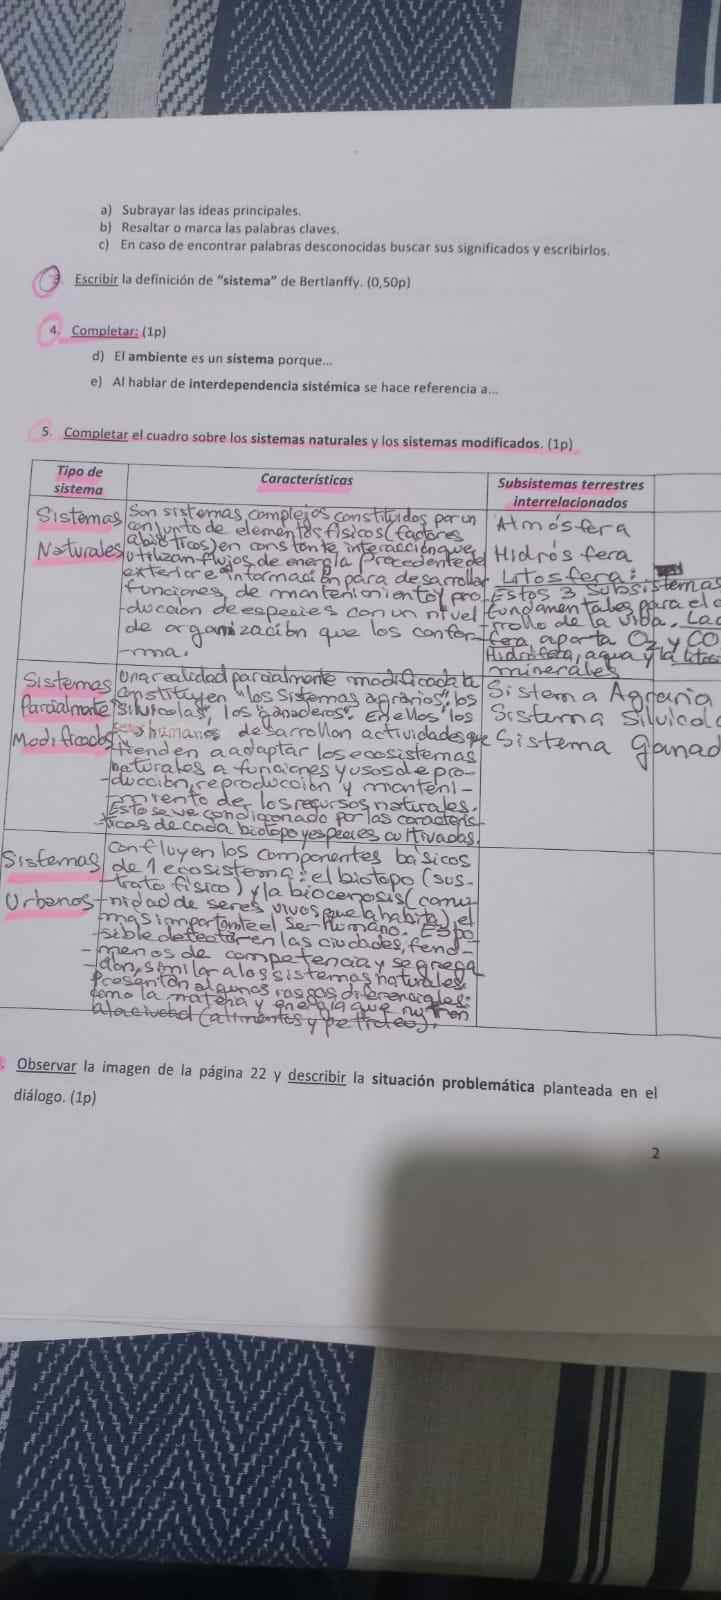 a) Subrayar las ideas principales.
b) Resaltar o marca las palabras claves.
c) En caso de encontrar palabras desconocidas buscar sus significados y escribirlos.
Escribir la definición de "sistema" de Bertlanffy. (0,50p)
4. Completar: (1p)
d) El ambiente es un sistema porque...
e) Al hablar de interdependencia sistémica se hace referencia a...
5. Completar el cuadro sobre los sistemas naturales y los sistemas modificados. (1p)
Tipo de
sistema
Características
Subsistemas terrestres
interrelacionados
Sistemas
Naturales
Son sistemas complejos constituidos por un
conjunto de elementos físicos (factores
abióticos) en constante interacción que
utilizan flujos de energía procedente del
exterior e información para desarrollar
funciones, de mantenimiento y pro-
-ducción de especies con un nivel
de organización que los confor-
-ma.
Atmósfera
Hidrósfera
Litosfera:
Estos 3 Subsistemas
fundamentales para el
-rrollo de la vida. La
fera aporta O2 y CO
Hidrosfera, agua y la
minerales
Sistemas
Parcialmente
Modificados
Una realidad parcialmente modificada la
constituyen "los sistemas agrarios", los
silvícolas", los "ganaderos". En ellos los
humanos desarrollan actividades que
tienden a adaptar los ecosistemas
naturales a funciones y usos de pro-
-ducción, reproducción y manteni-
-miento de los recursos naturales.
Esto se ve condicionado por las caracterís-
-ticas de cada biotopo y especies cultivadas.
Sistema Agraria
Sistema
Sistema
Sistemas
Urbanos
Confluyen los componentes básicos
de 1 ecosistema: el biotopo (sus-
-trato físico) y la biocenosis (comu
-nidad de seres vivos que la habita), el
mas importante el ser humano. Es po
-sible detectar en las ciudades, fenó-
-menos de competencia y segrega
-ción, similar a los sistemas naturales
Presentan algunos rasgos diferenciales:
como la materia y energía que nutren
a la ciudad (alimentos y petróleo).
Observar la imagen de la página 22 y describir la situación problemática planteada en el
diálogo. (1p)
2